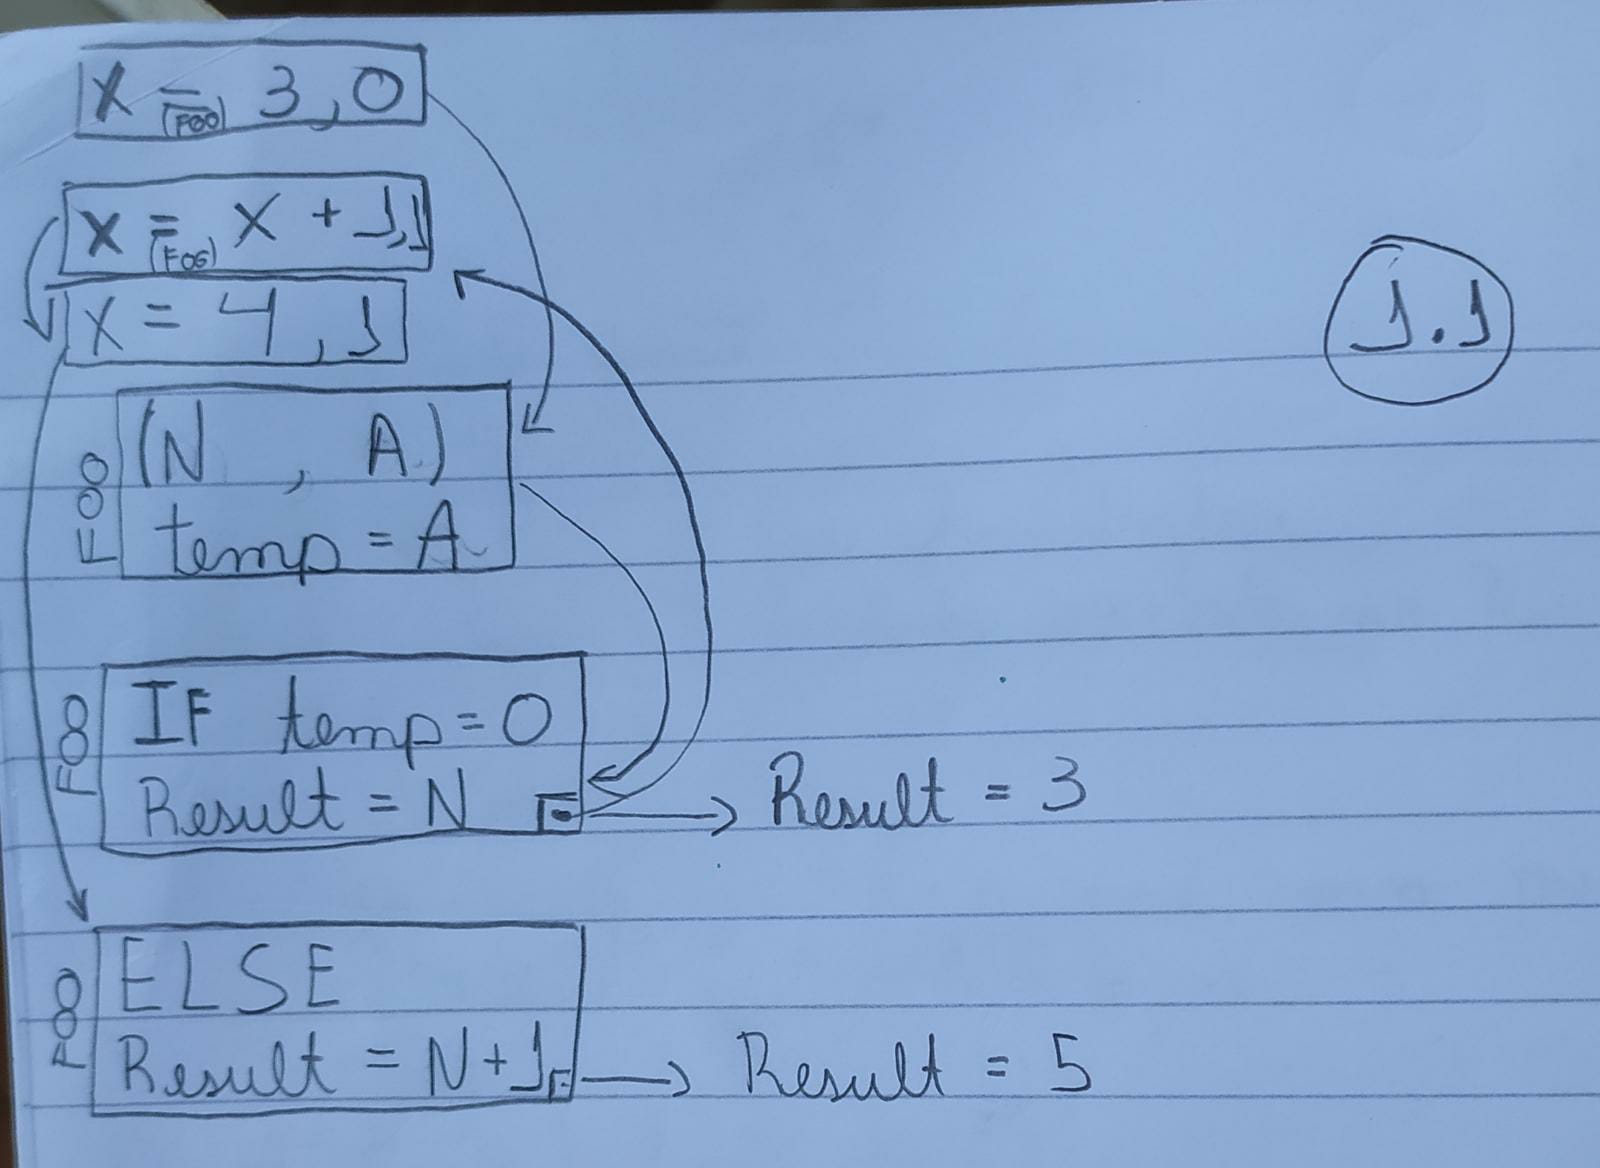 X = 3,0
(FOO)
X = X + 1,1
(FOO)
X = 4,1
1.1
FOO
(N , A)
temp = A
FOO
IF temp = 0
Result = N
Result = 3
FOO
ELSE
Result = N+1
Result = 5